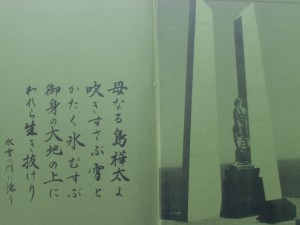 母なる島樺太よ
吹きすさぶ雪と
かたく氷むすぶ
御身の大地の上に
われら生き抜けり
氷雪の門に憶う